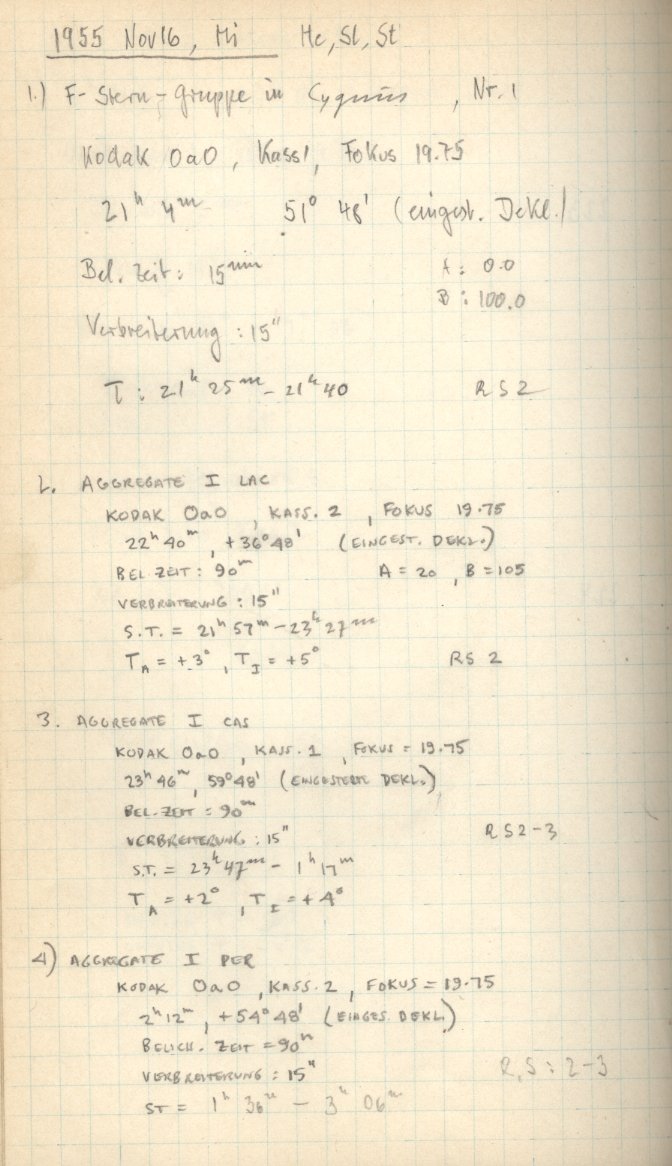 1955 Nov 16, Mi Hc, Sl, St
1.) F-Stern-Gruppe in Cygnus, Nr. 1
Kodak OaO, Kass 1, Fokus 19.75
21ʰ 4ᵐ 51° 48' (eingest. Dekl.)
Bel. Zeit: 15ᵐⁱⁿ A: 0.0
B: 100.0
Verbreiterung: 15"
T: 21ʰ 25ᵐ - 21ʰ 40 RS2
2. AGGREGATE I LAC
KODAK OaO, KASS. 2, FOKUS 19.75
22ʰ 40ᵐ, +36° 48' (EINGEST. DEKL.)
BEL ZEIT: 90ᵐ A = 20, B = 105
VERBREITERUNG: 15"
S.T. = 21ʰ 57ᵐ - 23ʰ 27ᵐ
T_A = +3°, T_I = +5° RS 2
3. AGGREGATE I CAS
KODAK OaO, KASS. 1, FOKUS = 19.75
23ʰ 46ᵐ, 59° 48' (EINGESTERTE DEKL.)
BEL. ZEIT = 90ᵐ
VERBREITERUNG: 15" RS2-3
S.T. = 23ʰ 47ᵐ - 1ʰ 17ᵐ
T_A = +2°, T_I = +4°
4) AGGREGATE I PER
KODAK OaO, KASS. 2, FOKUS = 19.75
2ʰ 12ᵐ, +54° 48' (EINGES. DEKL.)
BELICH. ZEIT = 90ᵐ
VERBREITERUNG: 15" R,S: 2-3
ST = 1ʰ 36ᵐ - 3ʰ 06ᵐ